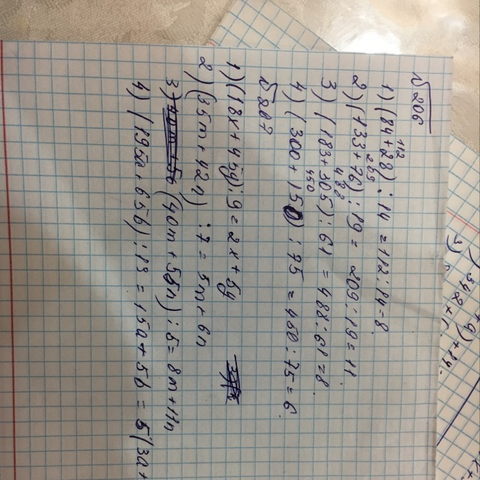 N206
112
1) (84+28) : 14 = 112:14=8
209
2) (133+76) : 19 = 209:19=11
488
3) (183+305) : 61 = 488:61=8.
450
4) (300+150) : 75 = 450:75=6
N207
1) (18x+45y):9=2x+5y
2) (35m+42n) :7=5m+6n
3) (40m+55n):5=8m+11n
4) (195a+65b):13=15a+5b=5(3a+